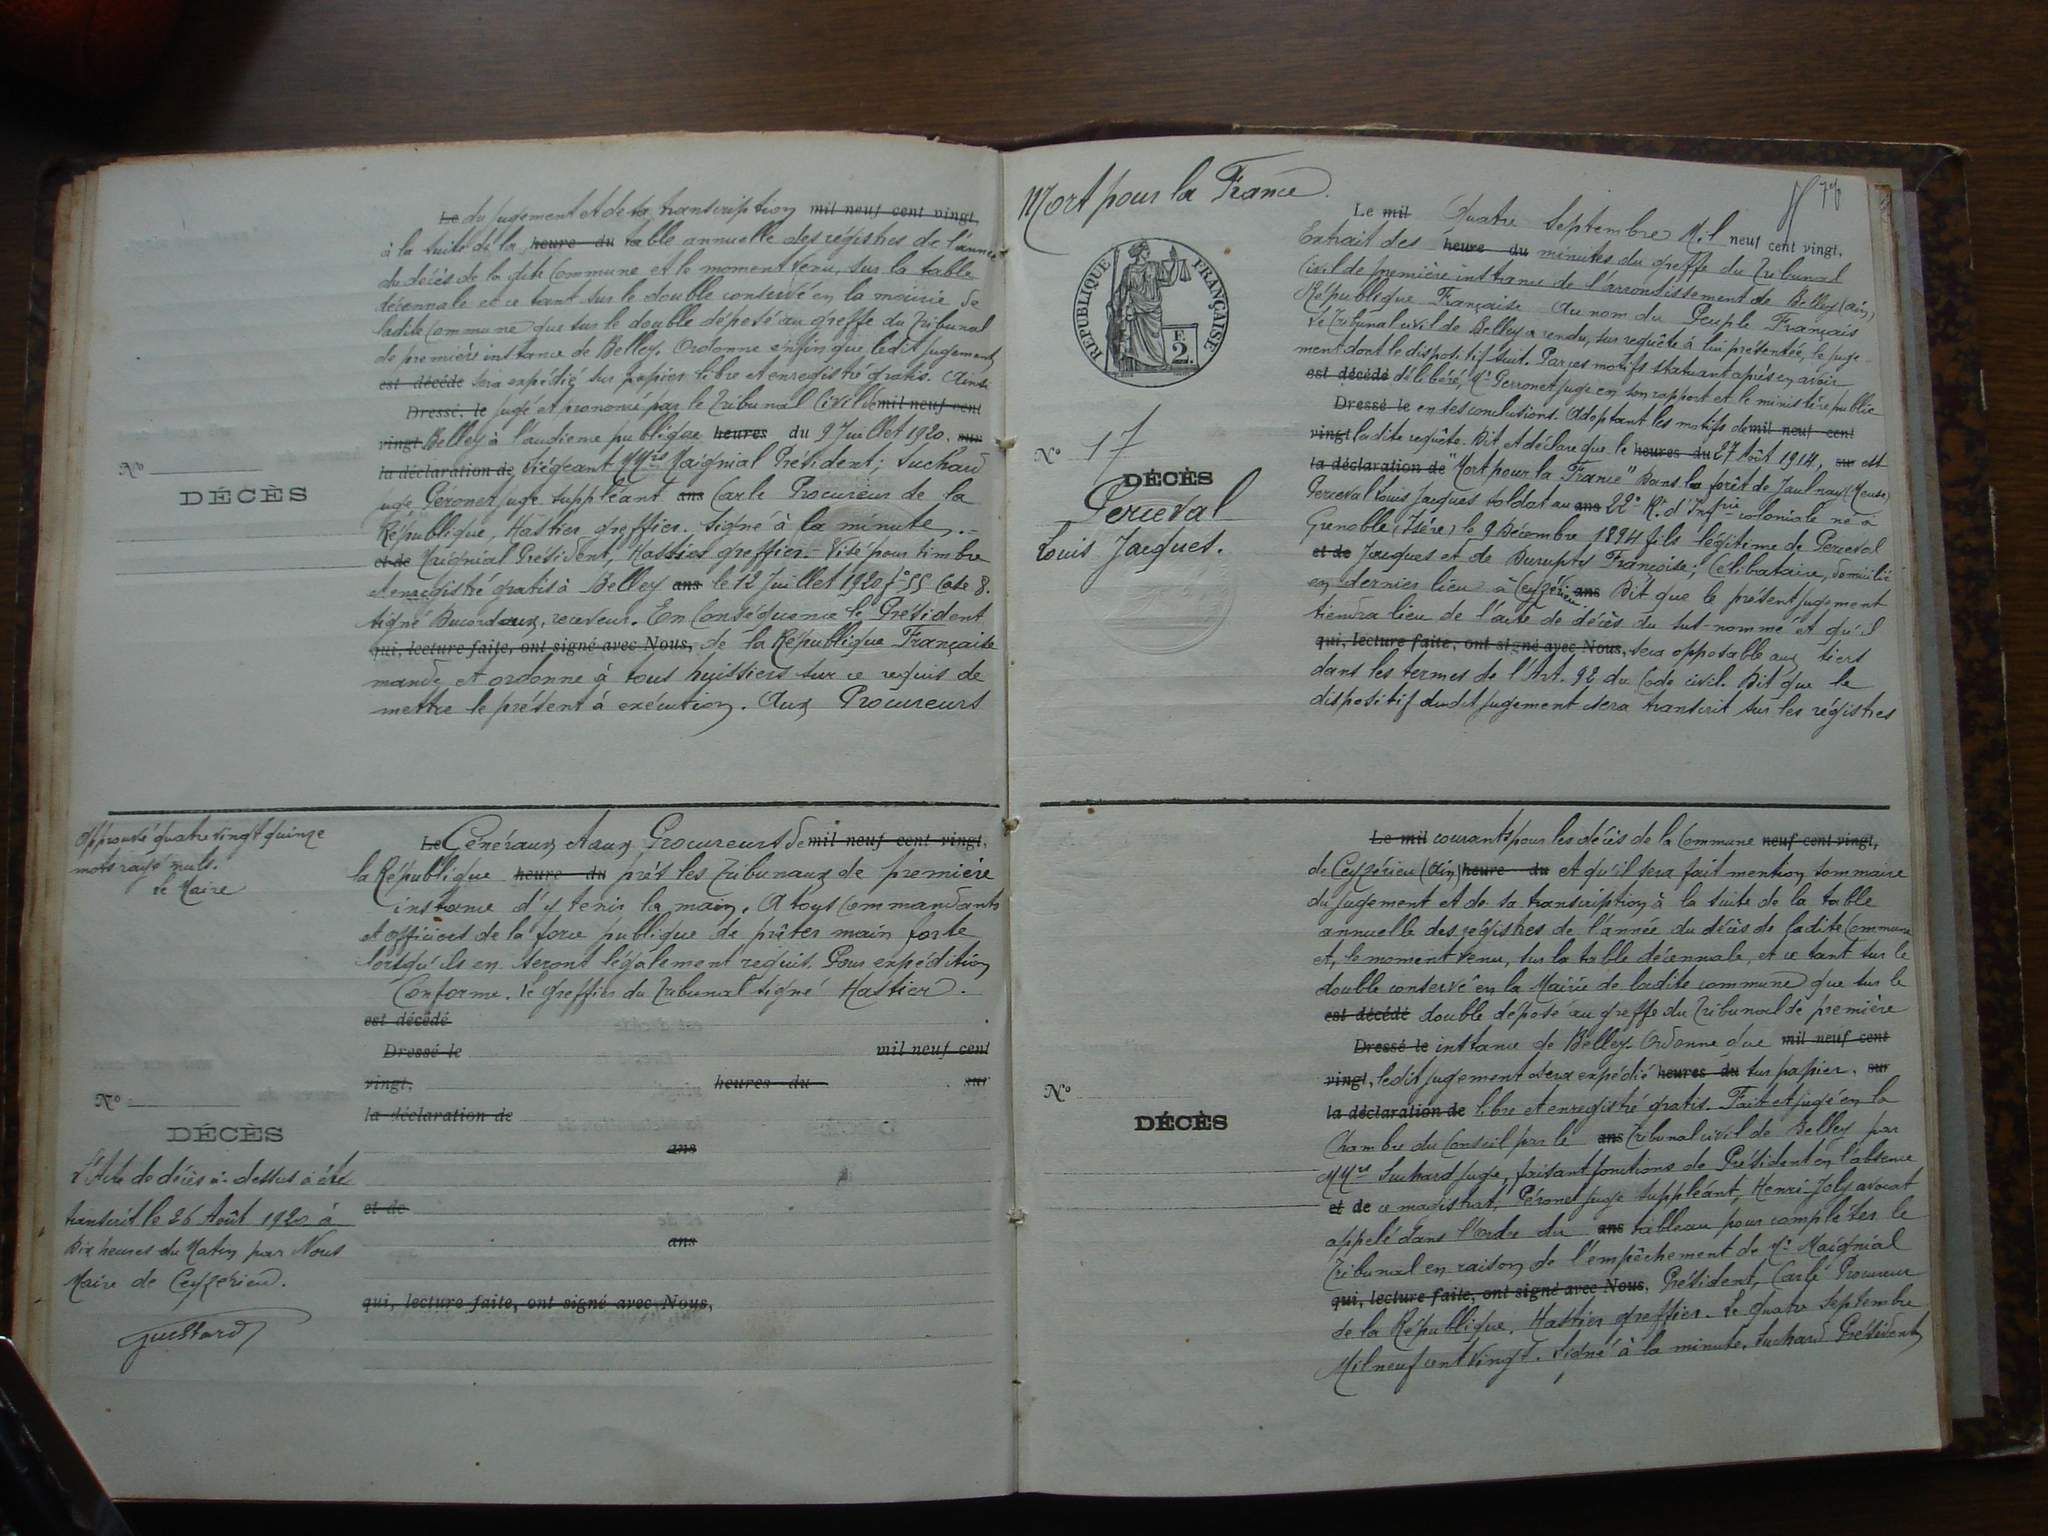 Le du jugement et de sa transcription mil neuf cent vingt,
à la suite de la heure du table annuelle des régistres de l'année
du décès de la dite Commune et le moment venu, sur la table
décennale et ce tant sur le double conservé en la mairie de
ladite Commune que sur le double déposé au greffe du Tribunal
de première instance de Belley. Ordonne enfin que ledit jugement
est décédé sera expédié sur papier libre et enregistré gratis. Ainsi
Dressé le jugé et prononcé par le Tribunal Civil de mil neuf cent
vingt Belley à l'audience publique heures du 9 Juillet 1920. sur
la déclaration de Siégeant MMrs Maignial Président; Suchard
juge Péronet juge suppléant ans Carle Procureur de la
République, Hastier greffier. Signé à la minute.-
et de Maignial Président, Hastier greffier.- Visé pour timbre
et enregistré gratis à Belley ans le 12 Juillet 1920 fo 55 Case 8.
signé, receveur. En Conséquence le Président
qui, lecture faite, ont signé avec Nous, de la République Française
mande et ordonne à tous huissiers sur ce requis de
mettre le présent à exécution. Aux Procureurs
No
DÉCÈS
Approuvé quatre vingt quinze
mots rayé nuls.
Le Maire
Le Généraux et aux Procureurs de mil neuf cent vingt,
la République heure du près les Tribunaux de première
instance d'y tenir la main. A tous Commandants
et officiers de la force publique de prêter main forte
lorsqu'ils en seront légalement requis. Pour expédition
Conforme. Le greffier du Tribunal signé Hastier.
est décédé
Dressé le mil neuf cent
vingt, heures du sur
la déclaration de
ans
et de
ans
qui, lecture faite, ont signé avec Nous,
No
DÉCÈS
L'Acte de décès ci-dessus a été
transcrit le 26 Août 1920 à
Dix heures du Matin par Nous
Maire de Ceyzerieu.
Mort pour la France
RÉPUBLIQUE FRANÇAISE
2F.
No 17
DÉCÈS
Perceval
Louis Jacques.
Le mil Quatre Septembre Mil neuf cent vingt,
Extrait des heure du minutes du greffe du Tribunal
Civil de première instance de l'arrondissement de Belley (Ain)
République Française Au nom du Peuple Français
Le Tribunal civil de Belley a rendu, sur requête à lui présentée, le juge-
ment dont le dispositif suit. Par ces motifs statuant après en avoir
est décédé délibéré, Mr Perronet juge en son rapport et le ministère public
Dressé le en ses conclusions. Adoptant les motifs de mil neuf cent
vingt ladite requête. Dit et déclare que le heures du 27 Août 1914, sur est
la déclaration de "Mort pour la France" Dans la forêt de Jaulnay (Meuse)
Perceval Louis Jacques soldat au ans 22e Rt d'Infrie coloniale né à
Grenoble (Isère) le 9 Décembre 1894 fils légitime de Perceval
et de Jacques et de Durupty Françoise; Célibataire, domicilié
en dernier lieu à Ceyzérieu ans Dit que le présent jugement
tiendra lieu de l'acte de décès du sus-nommé et qu'il
qui, lecture faite, ont signé avec Nous, sera opposable aux tiers
dans les termes de l'Art. 92 du Code civil. Dit que le
dispositif dudit jugement sera transcrit sur les régistres
Le mil courants pour les décès de la Commune neuf cent vingt,
de Ceyzérieu (Ain) heure du et qu'il sera fait mention sommaire
du jugement et de sa transcription à la suite de la table
annuelle des régistres de l'année du décès de ladite Commune
et, le moment venu, sur la table décennale, et ce tant sur le
double conservé en la Mairie de ladite commune que sur le
est décédé double déposé au greffe du Tribunal de première
Dressé le instance de Belley. Ordonne que mil neuf cent
vingt, ledit jugement sera expédié heures du sur papier. sur
la déclaration de libre et enregistré gratis. Fait et jugé en la
Chambre du Conseil par le ans Tribunal civil de Belley par
MMrs Suchard juge, faisant fonctions de Président en l'absence
et de ce magistrat, Péronet juge suppléant, Henri-Joly avocat
appelé dans l'Ordre du ans tableau pour compléter le
Tribunal en raison de l'empêchement de Mr Maignial
qui, lecture faite, ont signé avec Nous, Président, Carle Procureur
de la République, Hastier greffier. Le Quatre Septembre
Mil neuf cent Vingt. Signé à la minute. Suchard Président,
No
DÉCÈS